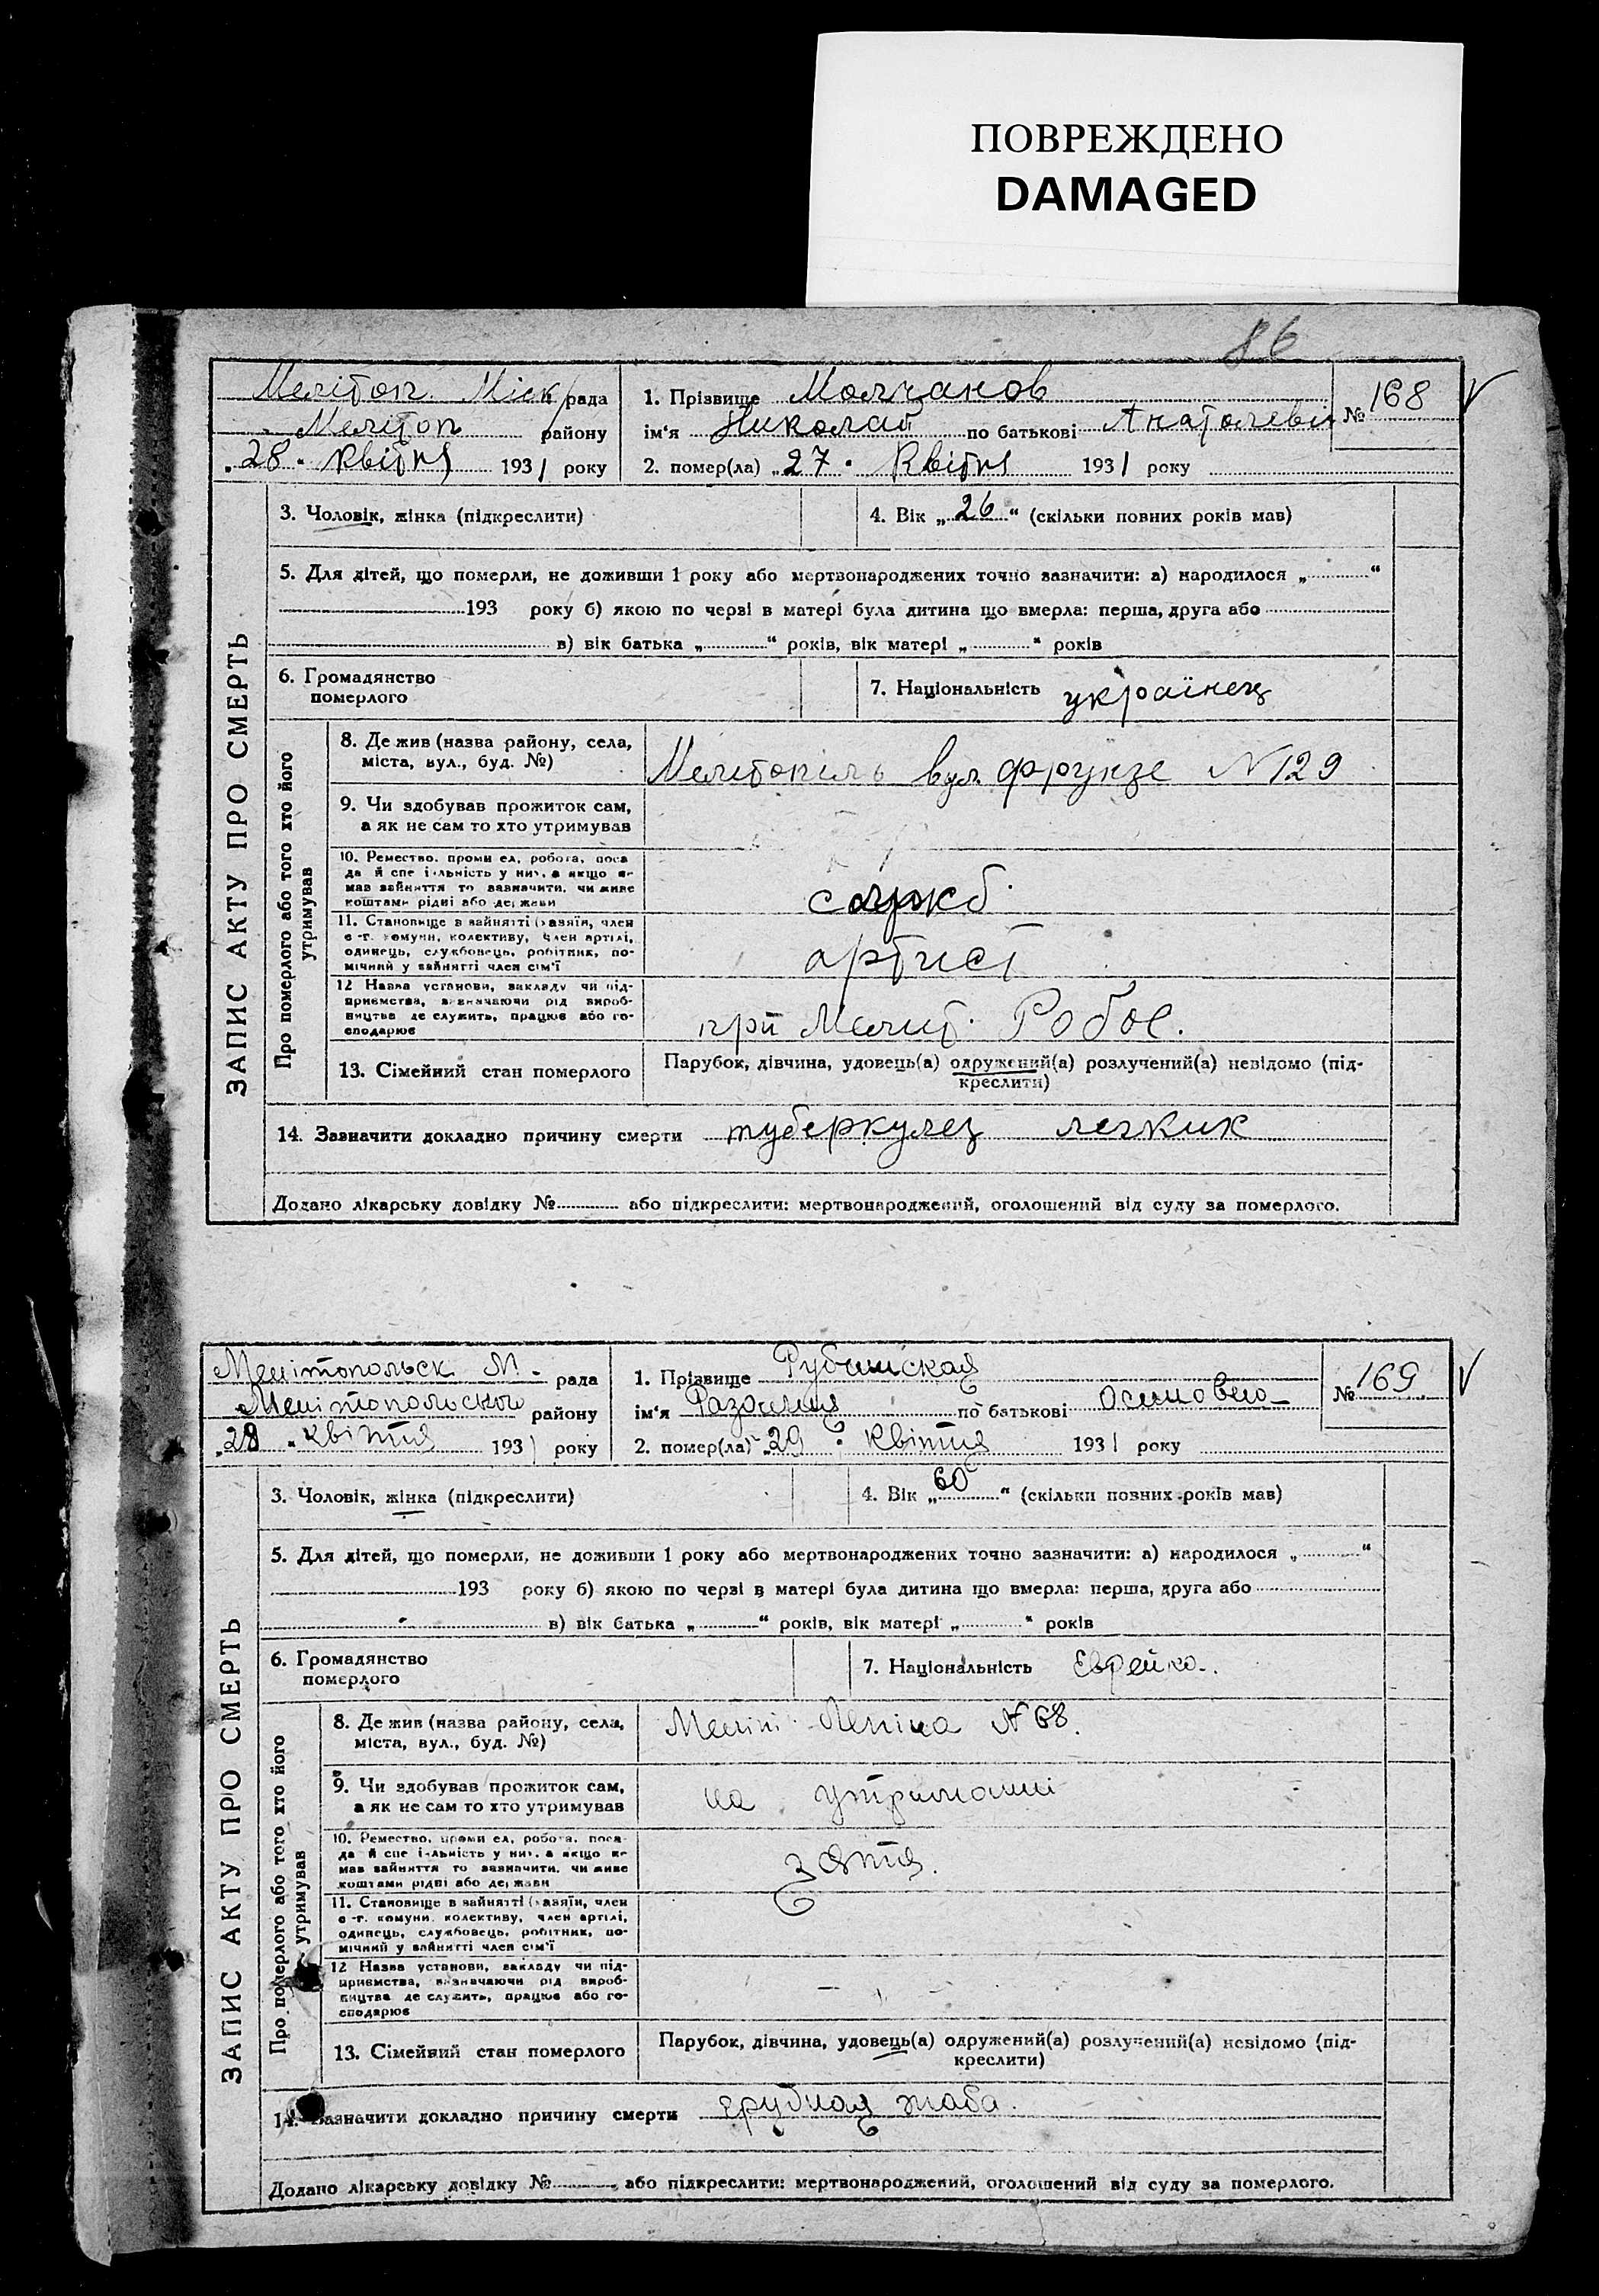 ПОВРЕЖДЕНО
DAMAGED
86
Мелітоп. Міск рада
Мелітоп району
„28" квітня 1931 року
1. Прізвище Молчанов
ім'я Николай по батькові Анатолевич
2. помер(ла) „27" Квітня 1931 року
№ 168 V
ЗАПИС АКТУ ПРО СМЕРТЬ
3. Чоловік, жінка (підкреслити)
4. Вік „26" (скільки повних років мав)
5. Для дітей, що померли, не доживши 1 року або мертвонароджених точно зазначити: а) народилося „ "
193 року б) якою по черзі в матері була дитина що вмерла: перша, друга або
в) вік батька „ " років, вік матері „ " років
6. Громадянство
померлого
7. Національність українец
Про померлого або того хто його
утримував
8. Де жив (назва району, села,
міста, вул., буд. №)
Мелитопіль вул. Фрунзе N 129
9. Чи здобував прожиток сам,
а як не сам то хто утримував
10. Ремество, проми ел, робота, поса
да й спе і льність у ни , а якщо не
мав зайняття то зазначити, чи живе
коштами рідні або держави
служб.
11. Становище в зайнятті (хазяїн, член
с.-г. комуни, колективу, член артілі,
одинець, службовець, робітник, по-
мічний у зайнятті член сім'ї
артист
12 Назва установи, закладу чи під-
приємства, визначаючи рід вироб-
ництва де служить, працює або го-
сподарює
при Мелит. Робос.
13. Сімейний стан померлого
Парубок, дівчина, удовець(а) одружений(а) розлучений(а) невідомо (під-
креслити)
14. Зазначити докладно причину смерти туберкулез легких
Додано лікарську довідку № або підкреслити: мертвонароджений, оголошений від суду за померлого.
Мелітопольск М. рада
Мелітопольского району
„28" квітня 1931 року
1. Прізвище
ім'я Розалия по батькові Осиповно
2. помер(ла) „29" квітня 1931 року
№ 169 V
ЗАПИС АКТУ ПРО СМЕРТЬ
3. Чоловік, жінка (підкреслити)
4. Вік „60" (скільки повних років мав)
5. Для дітей, що померли, не доживши 1 року або мертвонароджених точно зазначити: а) народилося „ "
193 року б) якою по черзі в матері була дитина що вмерла: перша, друга або
в) вік батька „ " років, вік матері „ " років
6. Громадянство
померлого
7. Національність Еврейка.
Про померлого або того хто його
утримував
8. Де жив (назва району, села,
міста, вул., буд. №)
Меліт. Леніна N 68.
9. Чи здобував прожиток сам,
а як не сам то хто утримував
на утриманні
10. Ремество, проми ел, робота, поса-
да й спе і льність у ни , а якщо не
мав зайняття то зазначити, чи живе
коштами рідні або держави
зятя.
11. Становище в зайнятті (хазяїн, член
с.-г. комуни, колективу, член артілі,
одинець, службовець, робітник, по-
мічний у зайнятті член сім'ї
12 Назва установи, закладу чи під-
приємства, визначаючи рід вироб-
ництва де служить, працює або го-
сподарює
13. Сімейний стан померлого
Парубок, дівчина, удовець(а) одружений(а) розлучений(а) невідомо (під-
креслити)
14. Зазначити докладно причину смерти грудная жаба.
Додано лікарську довідку № або підкреслити: мертвонароджений, оголошений від суду за померлого.